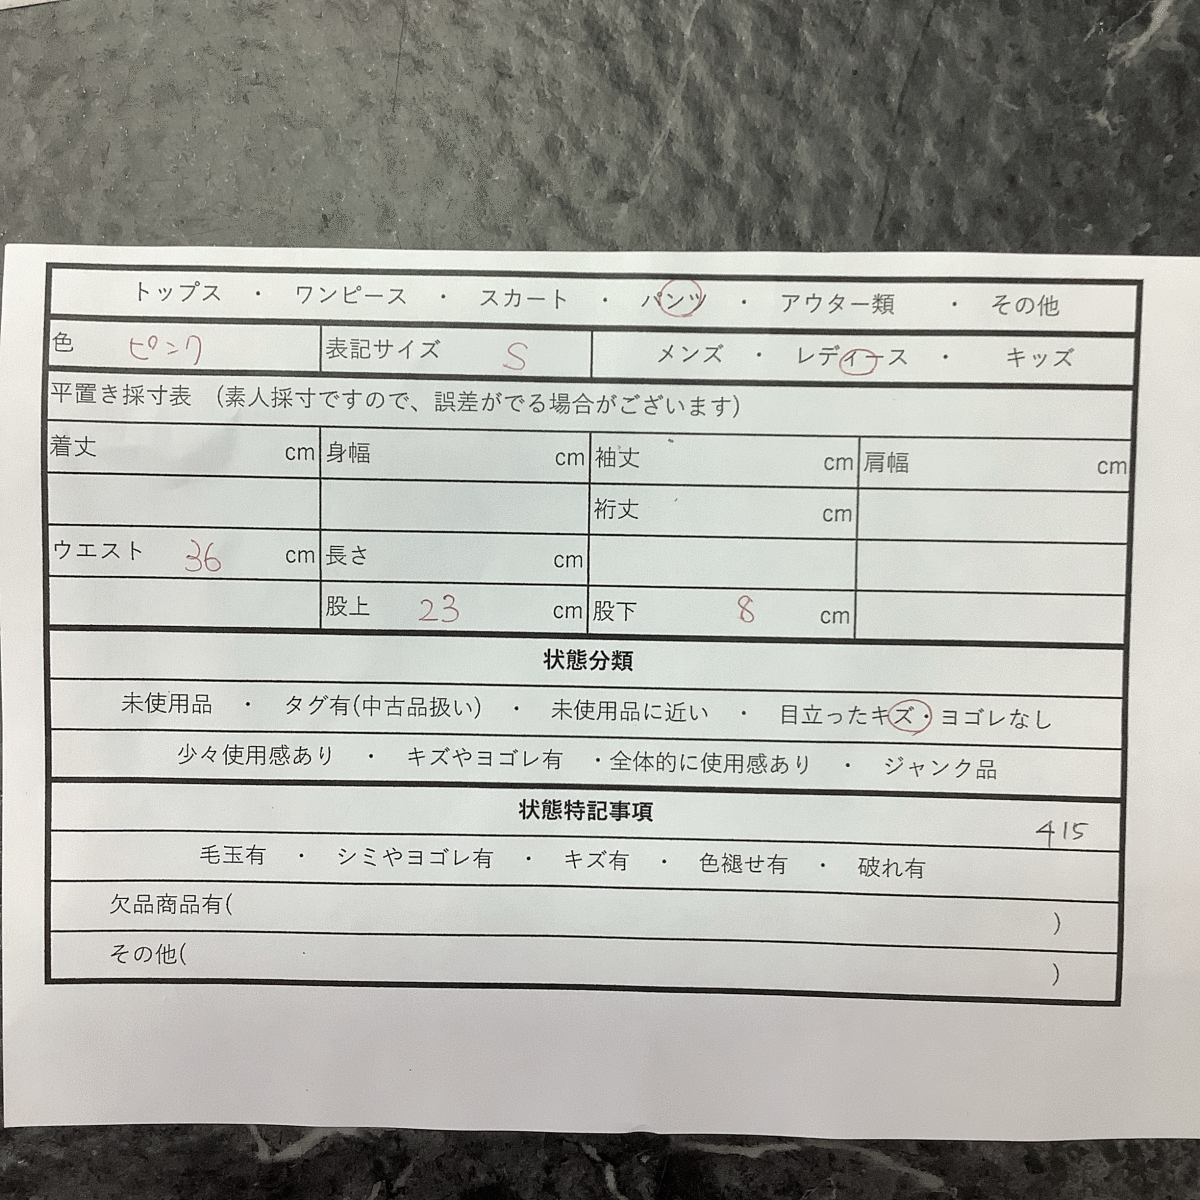 トップス ・ ワンピース ・ スカート ・ パンツ ・ アウター類 ・ その他
色 ピンク 表記サイズ S メンズ ・ レディース ・ キッズ
平置き採寸表 （素人採寸ですので、誤差がでる場合がございます）
着丈 cm 身幅 cm 袖丈 cm 肩幅 cm
裄丈 cm
ウエスト 36 cm 長さ cm
股上 23 cm 股下 8 cm
状態分類
未使用品 ・ タグ有(中古品扱い) ・ 未使用品に近い ・ 目立ったキズ・ヨゴレなし
少々使用感あり ・ キズやヨゴレ有 ・全体的に使用感あり ・ ジャンク品
状態特記事項
415
毛玉有 ・ シミやヨゴレ有 ・ キズ有 ・ 色褪せ有 ・ 破れ有
欠品商品有( )
その他( )